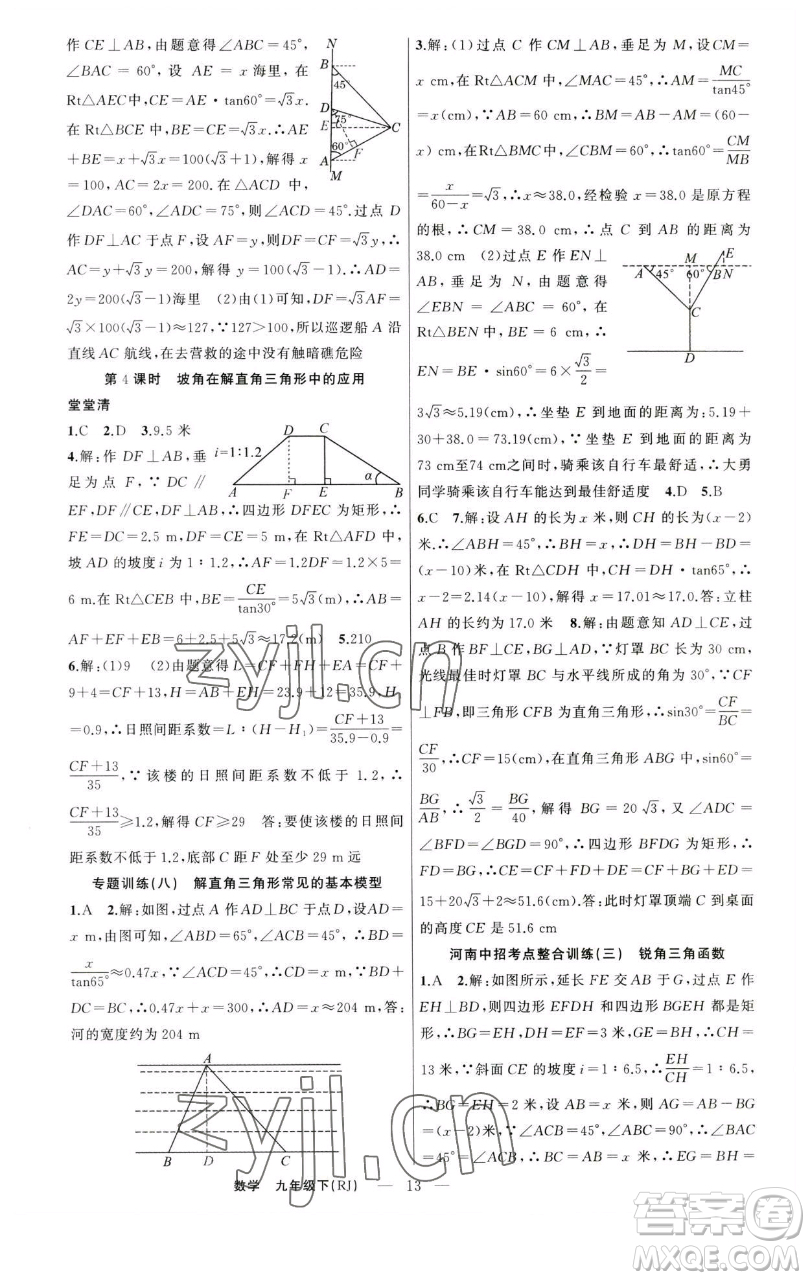 作 CE⊥AB,由题意得∠ABC=45°,
∠BAC=60°,设 AE=x 海里,在
Rt△AEC中,CE=AE·tan60°=√3x.
在 Rt△BCE 中,BE=CE=√3x.∴AE
+BE=x+√3x=100(√3+1),解得 x
=100,AC=2x=200.在△ACD 中,
∠DAC=60°,∠ADC=75°,则∠ACD=45°.过点 D
作 DF⊥AC 于点 F,设 AF=y,则 DF=CF=√3y,∴
AC=y+√3y=200,解得 y=100(√3-1),∴AD=
2y=200(√3-1)海里 (2)由(1)可知,DF=√3AF=
√3×100(√3-1)≈127,∵127>100,所以巡逻船 A 沿
直线 AC 航线,在去营救的途中没有触暗礁危险
N
B
45°
D
75°
E
C
60°
F
A
M
第 4 课时 坡角在解直角三角形中的应用
堂堂清
1.C 2.D 3.9.5 米
4.解:作 DF⊥AB,垂
足为点 F,∵DC∥
i=1∶1.2
D C
α
A F E B
EF,DF∥CE,DF⊥AB,∴四边形 DFEC 为矩形,∴
FE=DC=2.5 m,DF=CE=5 m,在 Rt△AFD 中,
坡 AD 的坡度 i 为 1∶1.2,∴AF=1.2DF=1.2×5=
6 m.在 Rt△CEB 中,BE=CE/tan30°=5√3(m),∴AB=
AF+EF+EB=6+2.5+5√3≈17.2(m) 5.210
6.解:(1)9 (2)由题意得 L=CF+FH+EA=CF+
9+4=CF+13,H=AB+EH=23.9+12=35.9,H₁
=0.9,∴日照间距系数=L∶(H-H₁)=(CF+13)/(35.9-0.9)=
(CF+13)/35,∵该楼的日照间距系数不低于 1.2,∴
(CF+13)/35≥1.2,解得 CF≥29 答:要使该楼的日照间
距系数不低于 1.2,底部 C 距 F 处至少 29 m 远
专题训练(八) 解直角三角形常见的基本模型
1.A 2.解:如图,过点 A 作 AD⊥BC 于点 D,设 AD=
x m,由题可知,∠ABD=65°,∠ACD=45°,∴BD=
x/tan65°≈0.47x,在 Rt△ACD 中,DC=AD=x,∵BD+
DC=BC,∴0.47x+x=300,∴AD=x≈204 m,答:
河的宽度约为 204 m
A
B D C
3.解:(1)过点 C 作 CM⊥AB,垂足为 M,设 CM=
x cm,在 Rt△ACM 中,∠MAC=45°,∴AM=MC/tan45°
=x(cm),∵AB=60 cm,∴BM=AB-AM=(60-
x) cm,在 Rt△BMC中,∠CBM=60°,∴tan60°=CM/MB
=x/(60-x)=√3,∴x≈38.0,经检验 x=38.0 是原方程
的根,∴CM=38.0 cm,∴点 C 到 AB 的距离为
38.0 cm (2)过点 E 作 EN⊥
AB,垂足为 N,由题意得
∠EBN=∠ABC=60°,在
Rt△BEN 中,BE=6 cm,∴
EN=BE·sin60°=6×√3/2=
M E
A 45° 60° B N
C
D
3√3≈5.19(cm),∴坐垫 E 到地面的距离为:5.19+
30+38.0=73.19(cm),∵坐垫 E 到地面的距离为
73 cm至74 cm之间时,骑乘该自行车最舒适,∴大勇
同学骑乘该自行车能达到最佳舒适度 4.D 5.B
6.C 7.解:设 AH 的长为 x 米,则 CH 的长为(x-2)
米.∴∠ABH=45°,∴BH=x,∴DH=BH-BD=
(x-10)米,在 Rt△CDH 中,∠CDH=65°,∴tan65°,∴
x-2=2.14(x-10),解得 x=17.01≈17.0.答:立柱
AH 的长约为 17.0 米 8.解:由题意知 AD⊥CE,过
点 B 作 BF⊥CE,BG⊥AD,∵灯罩 BC 长为 30 cm,
光线最佳时灯罩 BC 与水平线所成的角为 30°,∵CF
⊥FB,即三角形 CFB 为直角三角形,∴sin30°=CF/BC=
CF/30,∴CF=15(cm),在直角三角形 ABG 中,sin60°=
BG/AB,∴√3/2=BG/40,解得 BG=20√3,又∠ADC=
∠BFD=∠BGD=90°,∴四边形 BFDG 为矩形,∴
FD=BG,∴CE=CF+FD+DE=CF+BG+ED=
15+20√3+2≈51.6(cm).答:此时灯罩顶端 C 到桌面
的高度 CE 是 51.6 cm
河南中招考点整合训练(三) 锐角三角函数
1.A 2.解:如图所示,延长 FE 交 AB 于 G,过点 E 作
EH⊥BD,则四边形 EFDH 和四边形 BGEH 都是矩
形,∴BG=EH,DH=EF=3 米,GE=BH,∴CH=
13 米,∵斜面 CE 的坡度 i=1∶6.5,∴EH/CH=1∶6.5,
∴BG=EH=2 米,设 AB=x 米,则 AG=AB-BG=
(x-2)米,∵∠ACB=45°,∠ABC=90°,∴∠BAC
=45°=∠ACB,∴BC=AB=x 米,∴EG=BH=
数学 九年级下(RJ) — 13 —
zyjl.cn
zyjl.cn
答案圈
MXQE.COM